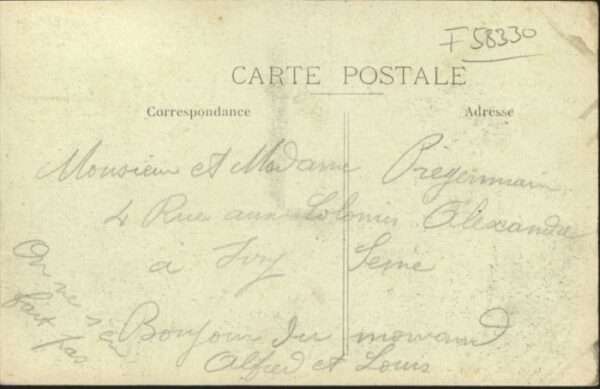 F 58330
CARTE POSTALE
Correspondance
Adresse
Monsieur et Madame Prégermain
4 Rue aux Alexandre
à Ivry Seine
On ne s'en
fait pas
Bonjour du
Alfred et Louis